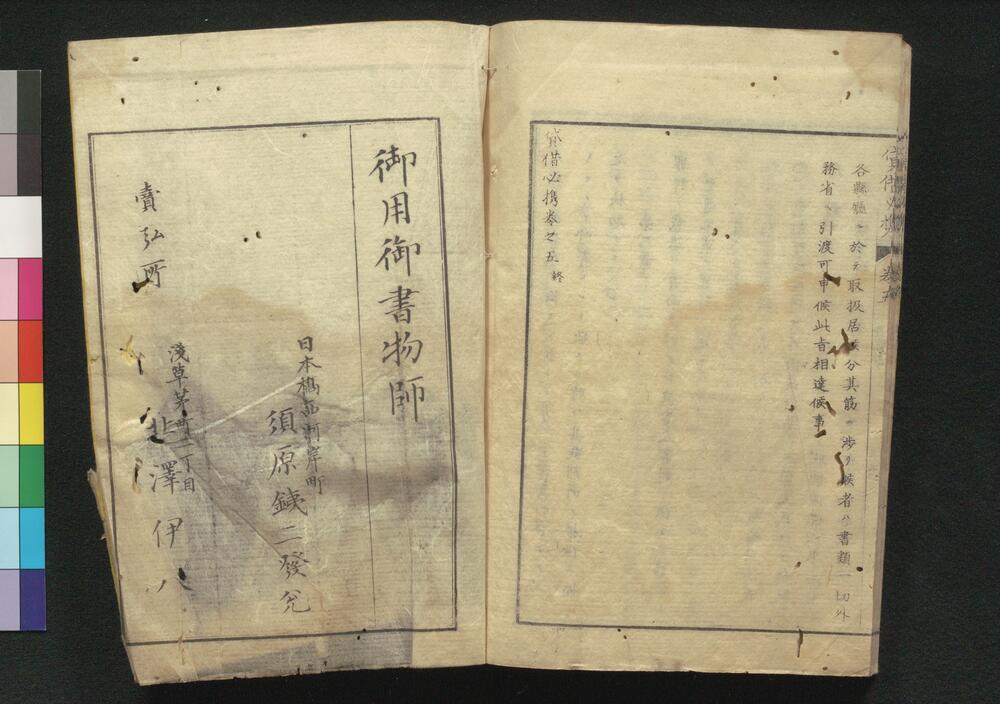 各縣廳ニ於テ取扱居候分其筋ニ渉リ候者ハ書類一切外
務省ヘ引渡可申候此旨相達候事
貸借必携卷之五終
貸借必携
卷五
御用御書物師
日本橋西河岸町
須原鉄二發兌
賣弘所
淺草茅町二丁目
北澤伊八